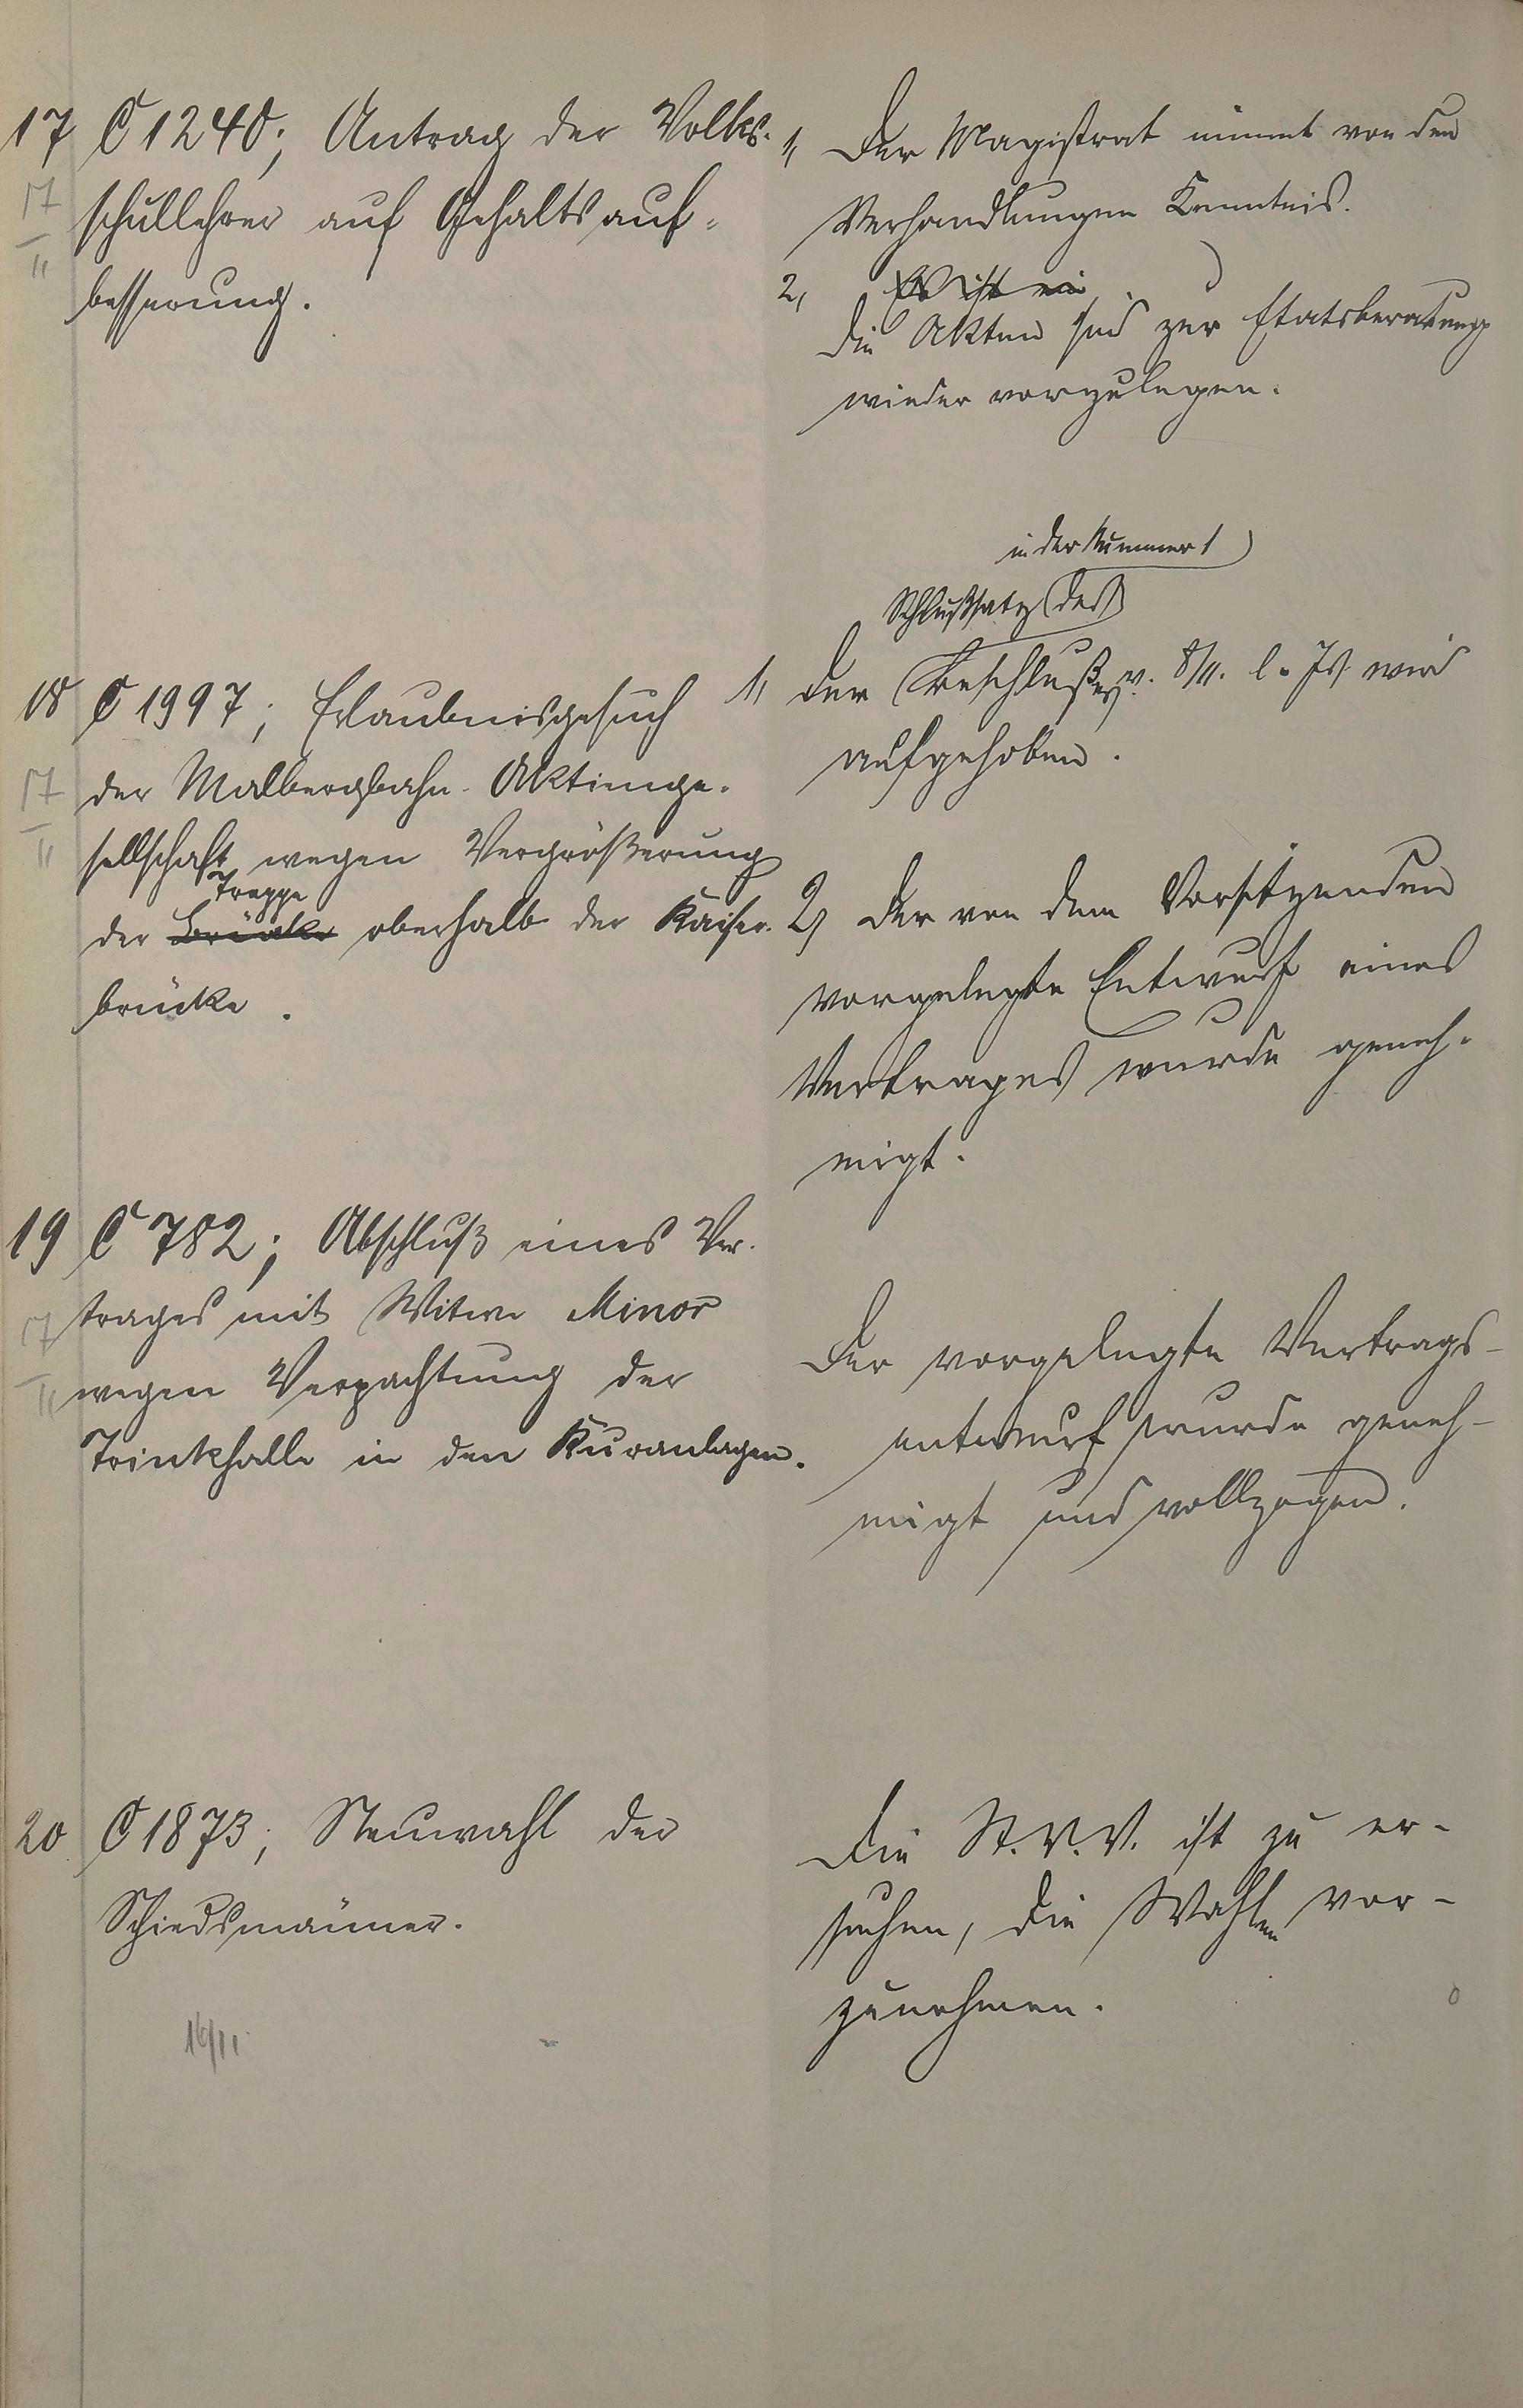 17 C 1240; Antrag der Volks-
17
II
schullehrer auf Gehaltsauf-
besserung.
1, Der Magistrat nimmt von den
Verhandlungen Kenntnis.
2, Es ist ein
Die Akten sind zur Etatsberatung
wieder vorzulegen.
18 C 1997; Erlaubnisgesuch
17
II
der Malbergbahn-Aktienge-
sellschaft wegen Vergrößerung
Treppe
der Brücke oberhalb der Kaiser-
brücke.
in der Nummer 1
Schlußsatz des
1, Der Beschlußes v. 8/11. l. Js wird
aufgehoben.
2, Der von dem Vorsitzenden
vorgelegte Entwurf eines
Vertrages wurde geneh-
migt.
19 C 782; Abschluß eines Ver-
17
II
trages mit Witwe Minor
wegen Verpachtung der
Trinkhalle in den Kuranlagen.
Der vorgelegte Vertrags-
entwurf wurde geneh-
migt und vollzogen.
20 C 1873; Neuwahl der
Schiedsmänner.
16/11
Die St.V.V. ist zu er-
suchen, die Wahlen vor-
zunehmen.